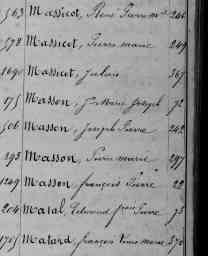 563 Massicot, René Pierre Mie 246
578 Massicot, Pierre marie 249
1690 Massicot, Julien 367
175 Masson, Jn Marie Joseph 72
506 Masson, Joseph Pierre 242
593 Masson, Pierre marie 297
1249 Masson, françois Pierre 22
204 Matal, Edmond fran Pierre 73
1705 Matard, françois Marie 370